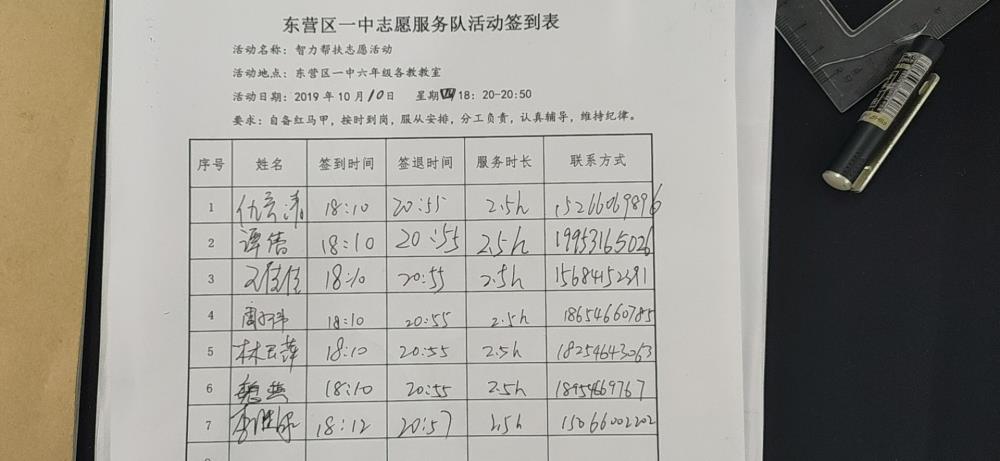 东营区一中志愿服务队活动签到表
活动名称：智力帮扶志愿活动
活动地点：东营区一中六年级各教教室
活动日期：2019年10月10日 星期四18：20-20:50
要求：自备红马甲，按时到岗，服从安排，分工负责，认真辅导，维持纪律。
序号 姓名 签到时间 签退时间 服务时长 联系方式
1 18:10 20:55 2.5h 15266069896
2 谭倩 18:10 20:55 2.5h 19953165026
3 18:10 20:55 2.5h
4 18:10 20:55 2.5h 18654660785
5 林玉萍 18:10 20:55 2.5h 18254643063
6 魏燕 18:10 20:55 2.5h 18954669767
7 18:12 20:57 2.5h 15066002202